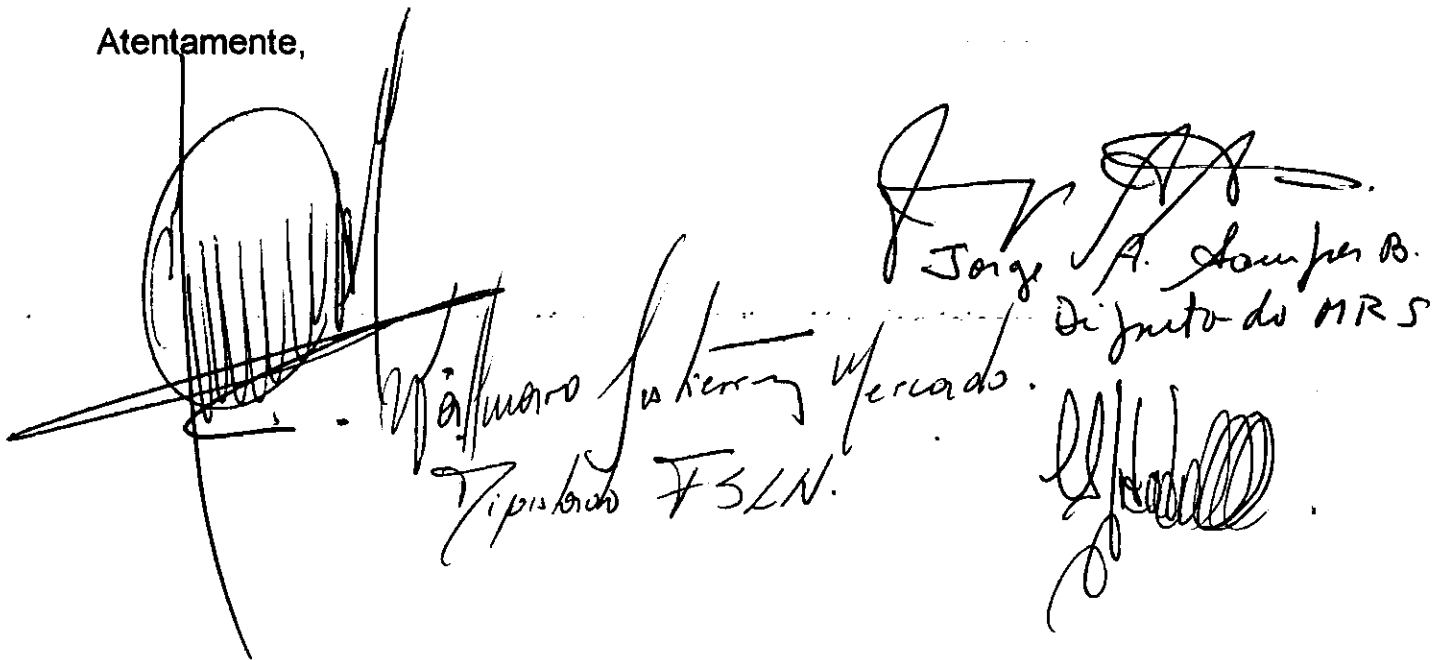 Atentamente,
Jorge A. Samper B.
Diputado MRS
Wálmaro Gutierrez Mercado.
Diputado FSLN.